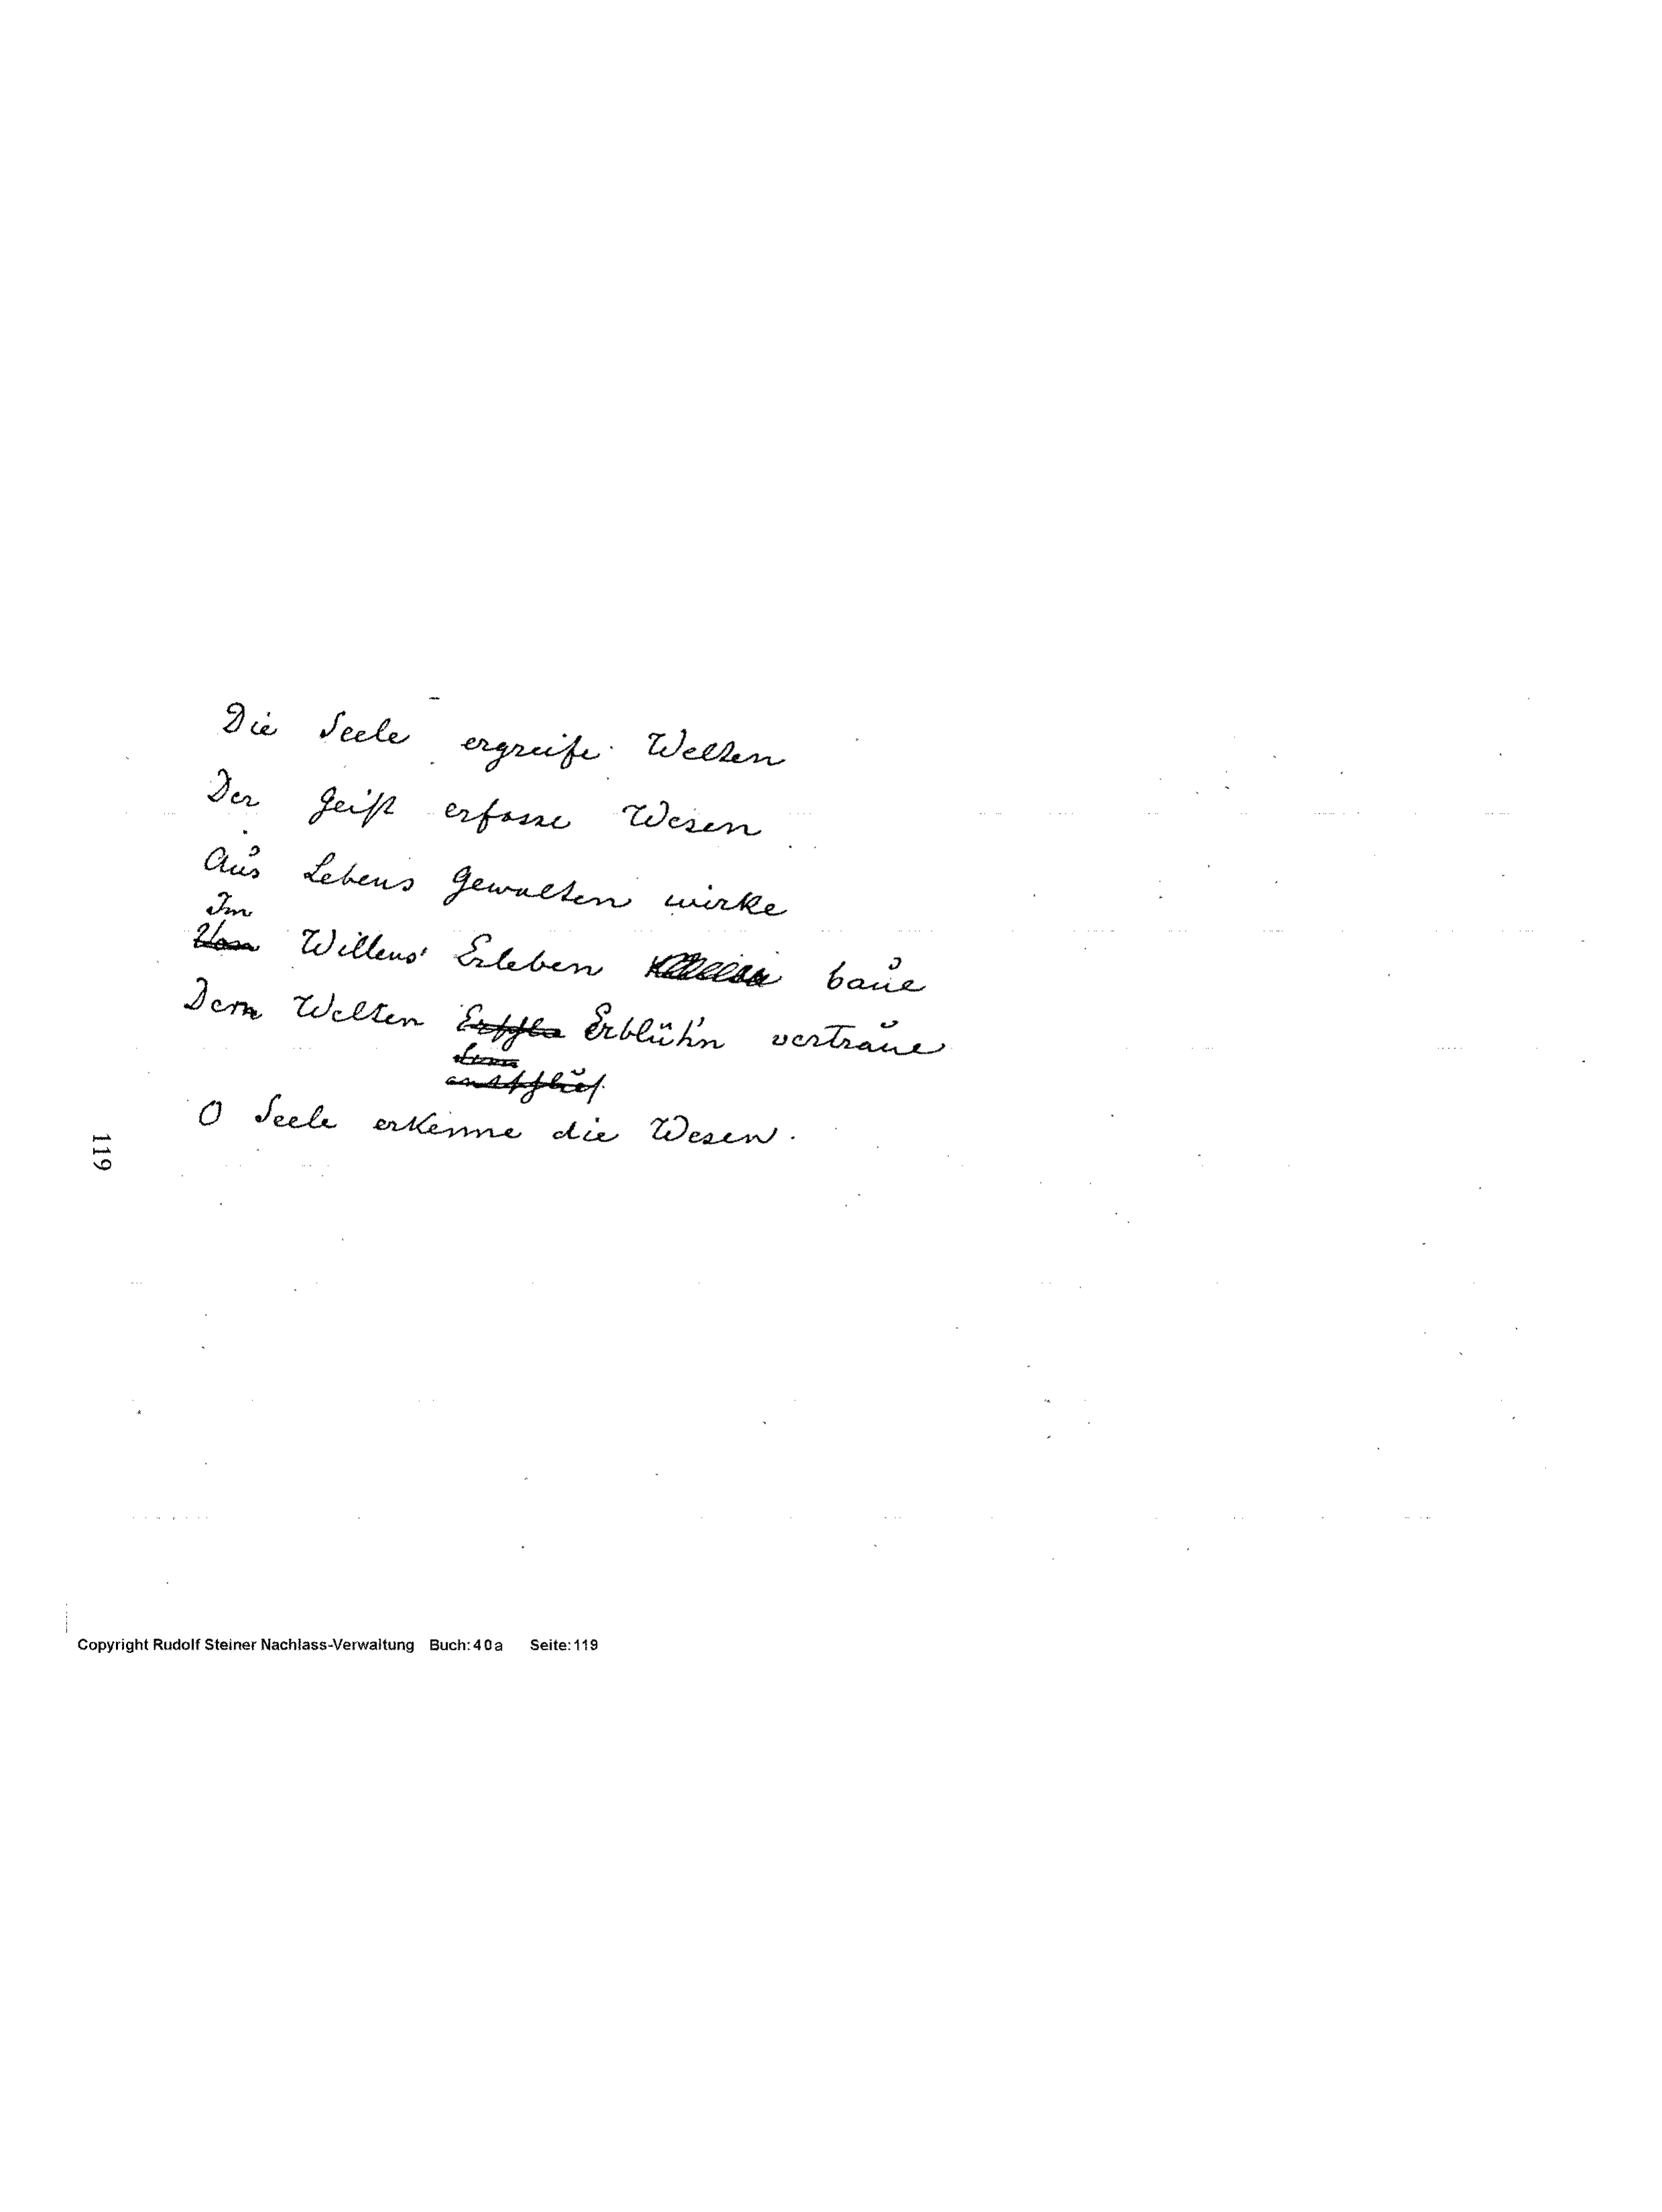 Die Seele ergreife Welten
Der Geist erfasse Wesen
Aus Lebens Gewalten wirke
Im
Willens' Erleben baue
Dem Welten Erblüh'n vertraue
O Seele erkenne die Wesen.
119
Copyright Rudolf Steiner Nachlass-Verwaltung Buch: 40a Seite: 119